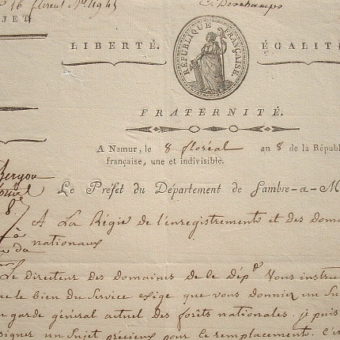 16 floreal N° 1945
C. Deschamps
LIBERTÉ.
RÉPUBLIQUE FRANÇAISE.
ÉGALITÉ
FRATERNITÉ.
A Namur, le 8 floréal an 8 de la Républ
française, une et indivisible.
Le Prefet du Département de Sambre-a-M
A La Régie de l'enregistrements et des Dom
nationaux
Le Directeur des Domaines de le Dépt Vous instru
le bien du Service exige que vous donniez un Su
garde général actuel des forêts nationales. je puis
un Sujet précieux pour ce remplacement. C'est